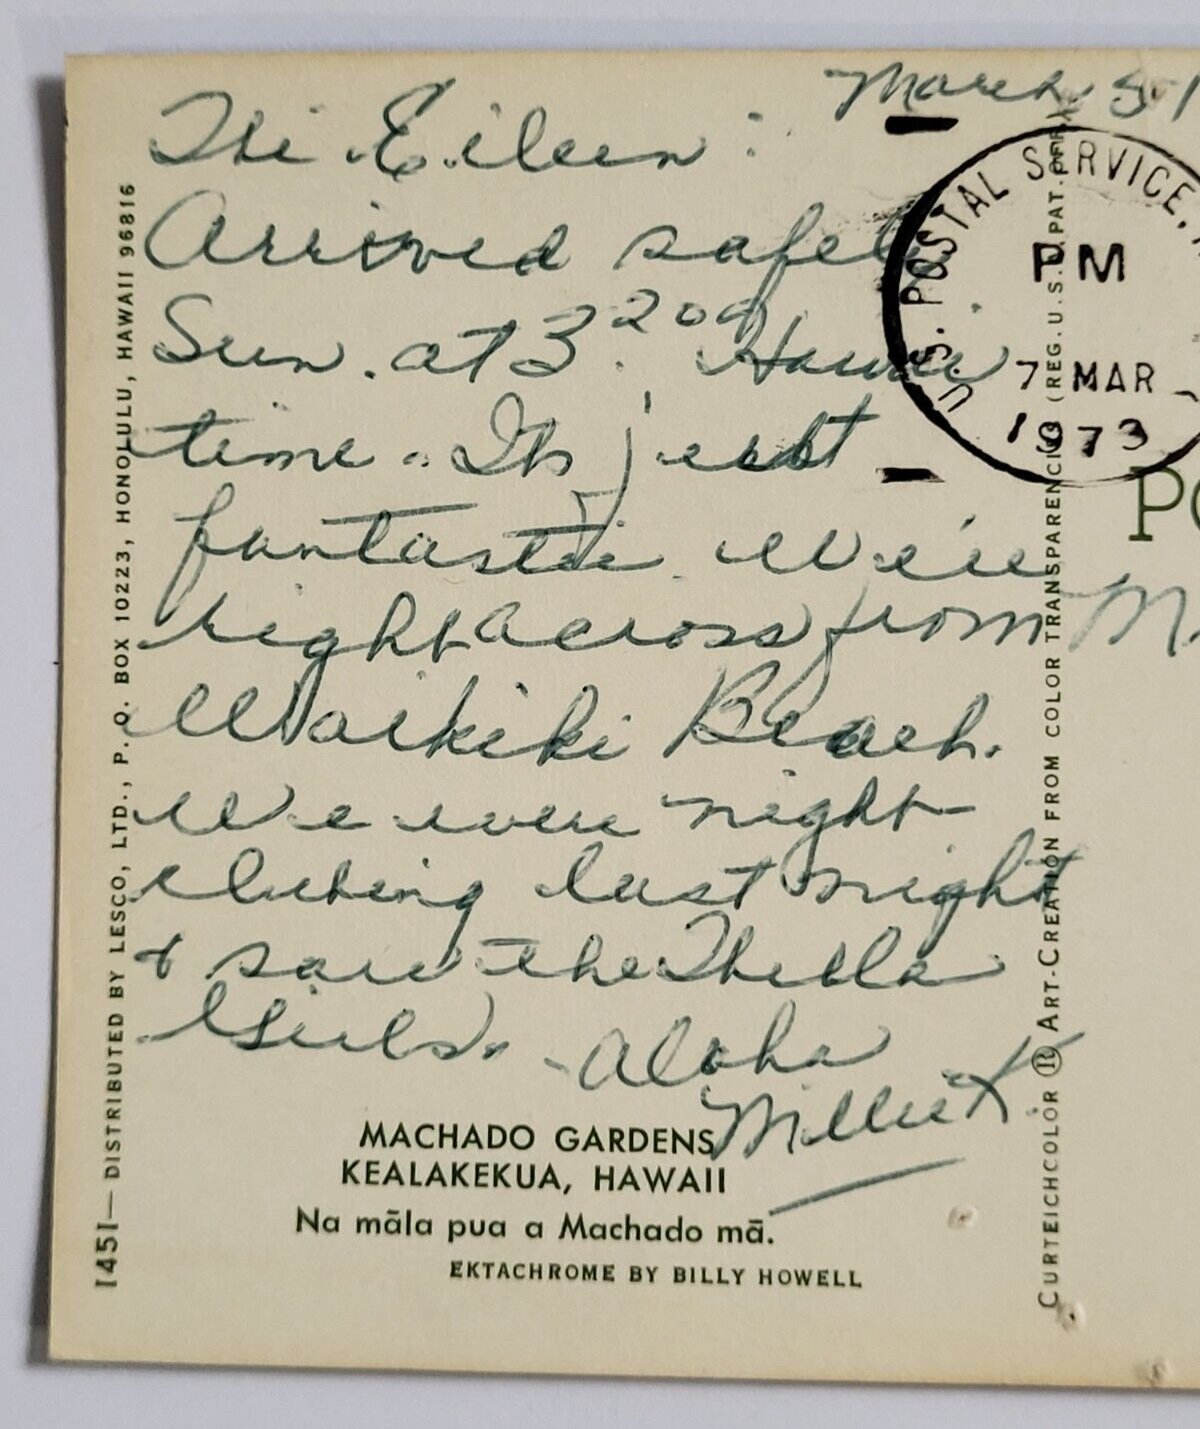 March 5, 1
Hi Eileen:
Arrived safely
Sun. at 3:20 Hawaii
time. Its just
fantastic. We're
right across from
Waikiki Beach.
We were night
clubing last night
& saw the
Girls. - Aloha
Millie K.
MACHADO GARDENS
KEALAKEKUA, HAWAII
Na māla pua a Machado mā.
EKTACHROME BY BILLY HOWELL
1451— DISTRIBUTED BY LESCO, LTD., P. O. BOX 10223, HONOLULU, HAWAII 96816
CURTEICHCOLOR ® ART-CREATION FROM COLOR TRANSPARENCIES (REG. U.S. PAT. OFF.)
U.S. POSTAL SERVICE,
PM
7 MAR
1973
PO
M